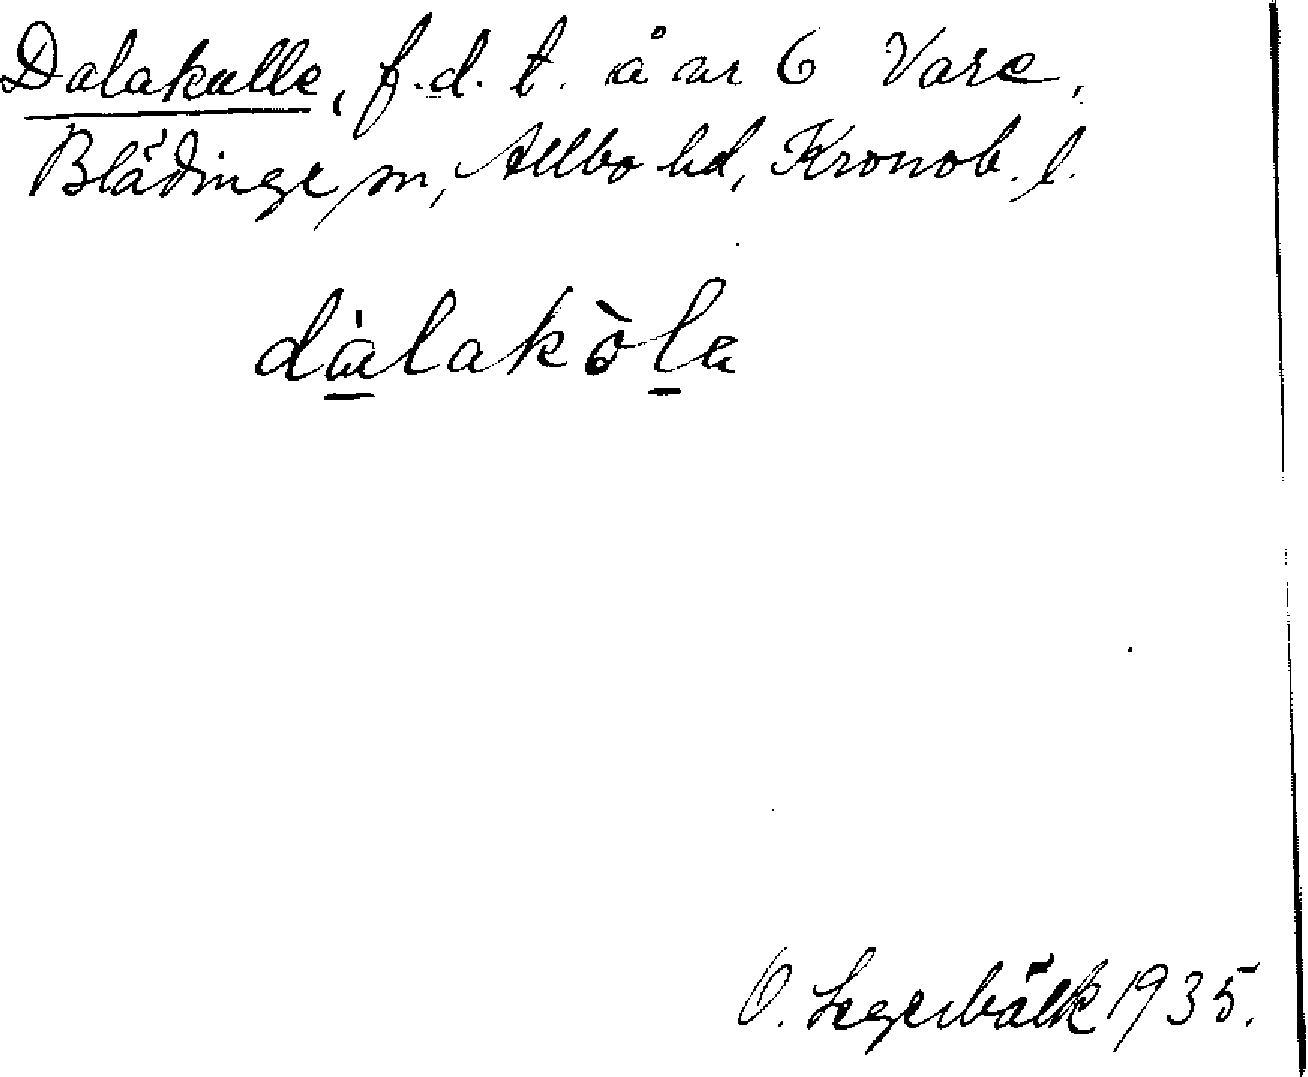 Dalakulle, f.d. t. å nr 6 Vare,
Blädinge sn, Allbo hd, Kronob. l.
dàlakòla
O. Legerbäck 1935.